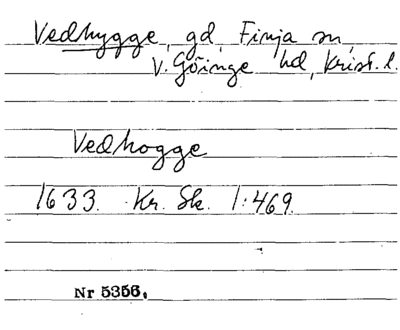 Vedhygge, gd, Finja sn
V. Göinge hd, Krist. l.
Vedhogge
1633. Kr. Sk. 1:469.
Nr 5356,